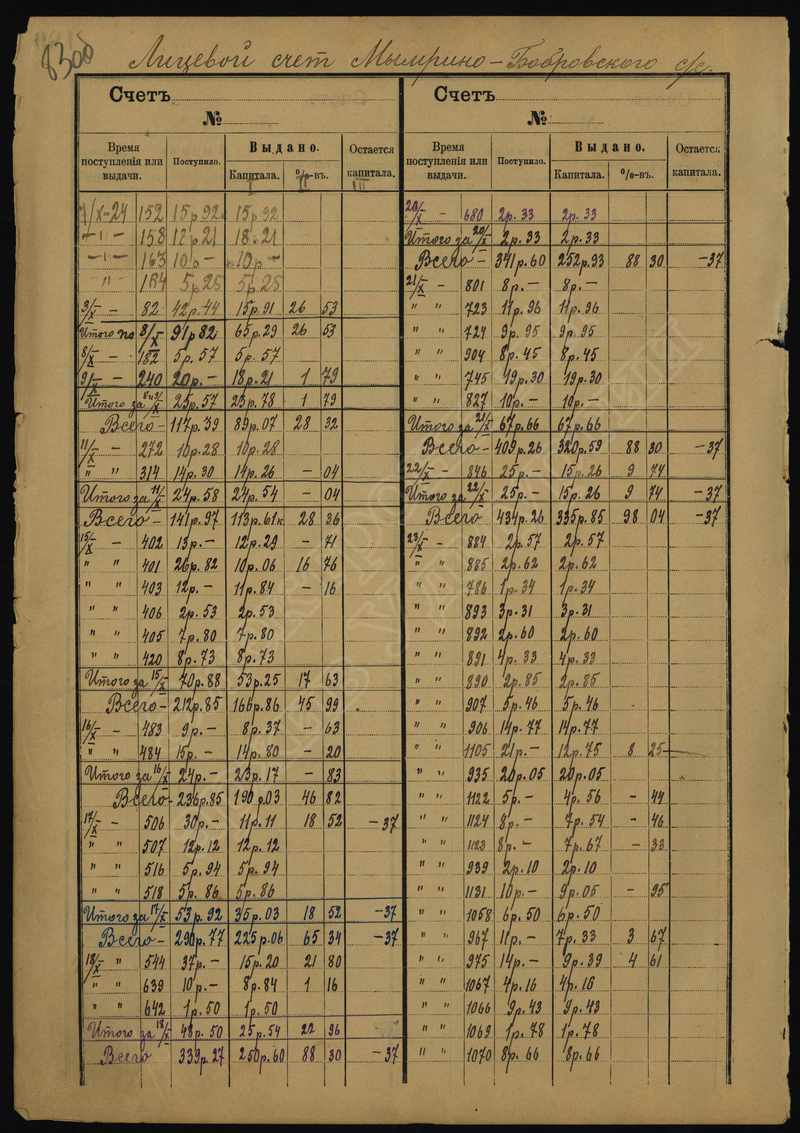 Лицевой счет Мымрино-Бобровского с/с.
Счетъ
№
Время поступленія или выдачи. Поступило. Выдано. Капитала. %-въ. Остается капитала.
X-24 152 15р92 15р92
-"- 158 18р21
-"- 163 10р- 10р-
" 164 5р25 5р25
3/X - 82 42р.44 15р.91 26 53
Итого по 3/X 91р82 65р.29 26 53
8/X - 182 5р.57 5р.57
9/X - 240 20р.- 18р.21 1 79
Итого за 8и9/X 25р.57 23р.78 1 79
Всего- 117р.39 89р.07 28 32
11/X - 272 10р.28 10р.28
" " 314 14р.30 14р.26 - 04
Итого за 11/X 24р.58 24р.54 - 04
Всего- 141р.97 113р.61к 28 36
15/X - 402 13р.- 12р.29 - 71
" " 401 26р.82 10р.06 16 76
" " 403 12р.- 11р.84 - 16
" " 406 2р.53 2р.53
" " 405 7р.80 7р.80
" " 420 8р.73 8р.73
Итого за 15/X 70р.88 53р.25 17 63
Всего- 212р.85 166р.86 45 99
16/X - 483 9р.- 8р.37 - 63
" " 484 15р.- 14р.80 - 20
Итого за 16/X 24р.- 23р.17 - 83
Всего- 236р.85 190р.03 46 82
17/X - 506 30р.- 11р.11 18 52 -37
" " 507 12р.12 12р.12
" " 516 5р.94 5р.94
" " 518 5р.86 5р.86
Итого за 17/X 53р.92 35р.03 18 52 -37
Всего- 290р.77 225р.06 65 34 -37
18/X " 544 37р.- 15р.20 21 80
" " 639 10р.- 8р.84 1 16
" " 642 1р.50 1р.50
Итого за 18/X 48р.50 25р.54 22 96
Всего 339р.27 250р.60 88 30 -37
Счетъ
№
Время поступленія или выдачи. Поступило. Выдано. Капитала. %-въ. Остается капитала.
20/X - 680 2р.33 2р.33
Итого за 20/X 2р.33 2р.33
Всего- 341р.60 252р.93 88 30 -37
21/X - 801 8р.- 8р.-
" " 723 11р.96 11р.96
" " 724 9р.95 9р.95
" " 904 8р.45 8р.45
" " 745 19р.30 19р.30
" " 827 10р.- 10р.-
Итого за 21/X 67р.66 67р.66
Всего- 409р.26 320р.59 88 30 -37
22/X - 846 25р.- 15р.26 9 74
Итого за 22/X 25р.- 15р.26 9 74 -37
Всего 434р.26 335р.85 98 04 -37
23/X - 884 2р.57 2р.57
" " 885 2р.62 2р.62
" " 786 1р.34 1р.34
" " 893 3р.31 3р.31
" " 892 2р.60 2р.60
" " 891 4р.33 4р.33
" " 890 2р.85 2р.85
" " 907 5р.46 5р.46
" " 906 14р.77 14р.77
" " 1105 21р.- 12р.75 8 25
" " 935 20р.05 20р.05
" " 1122 5р.- 4р.56 - 44
" " 1124 8р.- 7р.54 - 46
" " 1123 8р.- 7р.67 - 33
" " 939 2р.10 2р.10
" " 1131 10р.- 9р.05 - 95
" " 1058 6р.50 6р.50
" " 967 11р.- 7р.33 3 67
" " 975 14р.- 9р.39 4 61
" " 1067 4р.16 4р.16
" " 1066 9р.43 9р.43
" " 1069 1р.78 1р.78
" " 1070 8р.66 8р.66